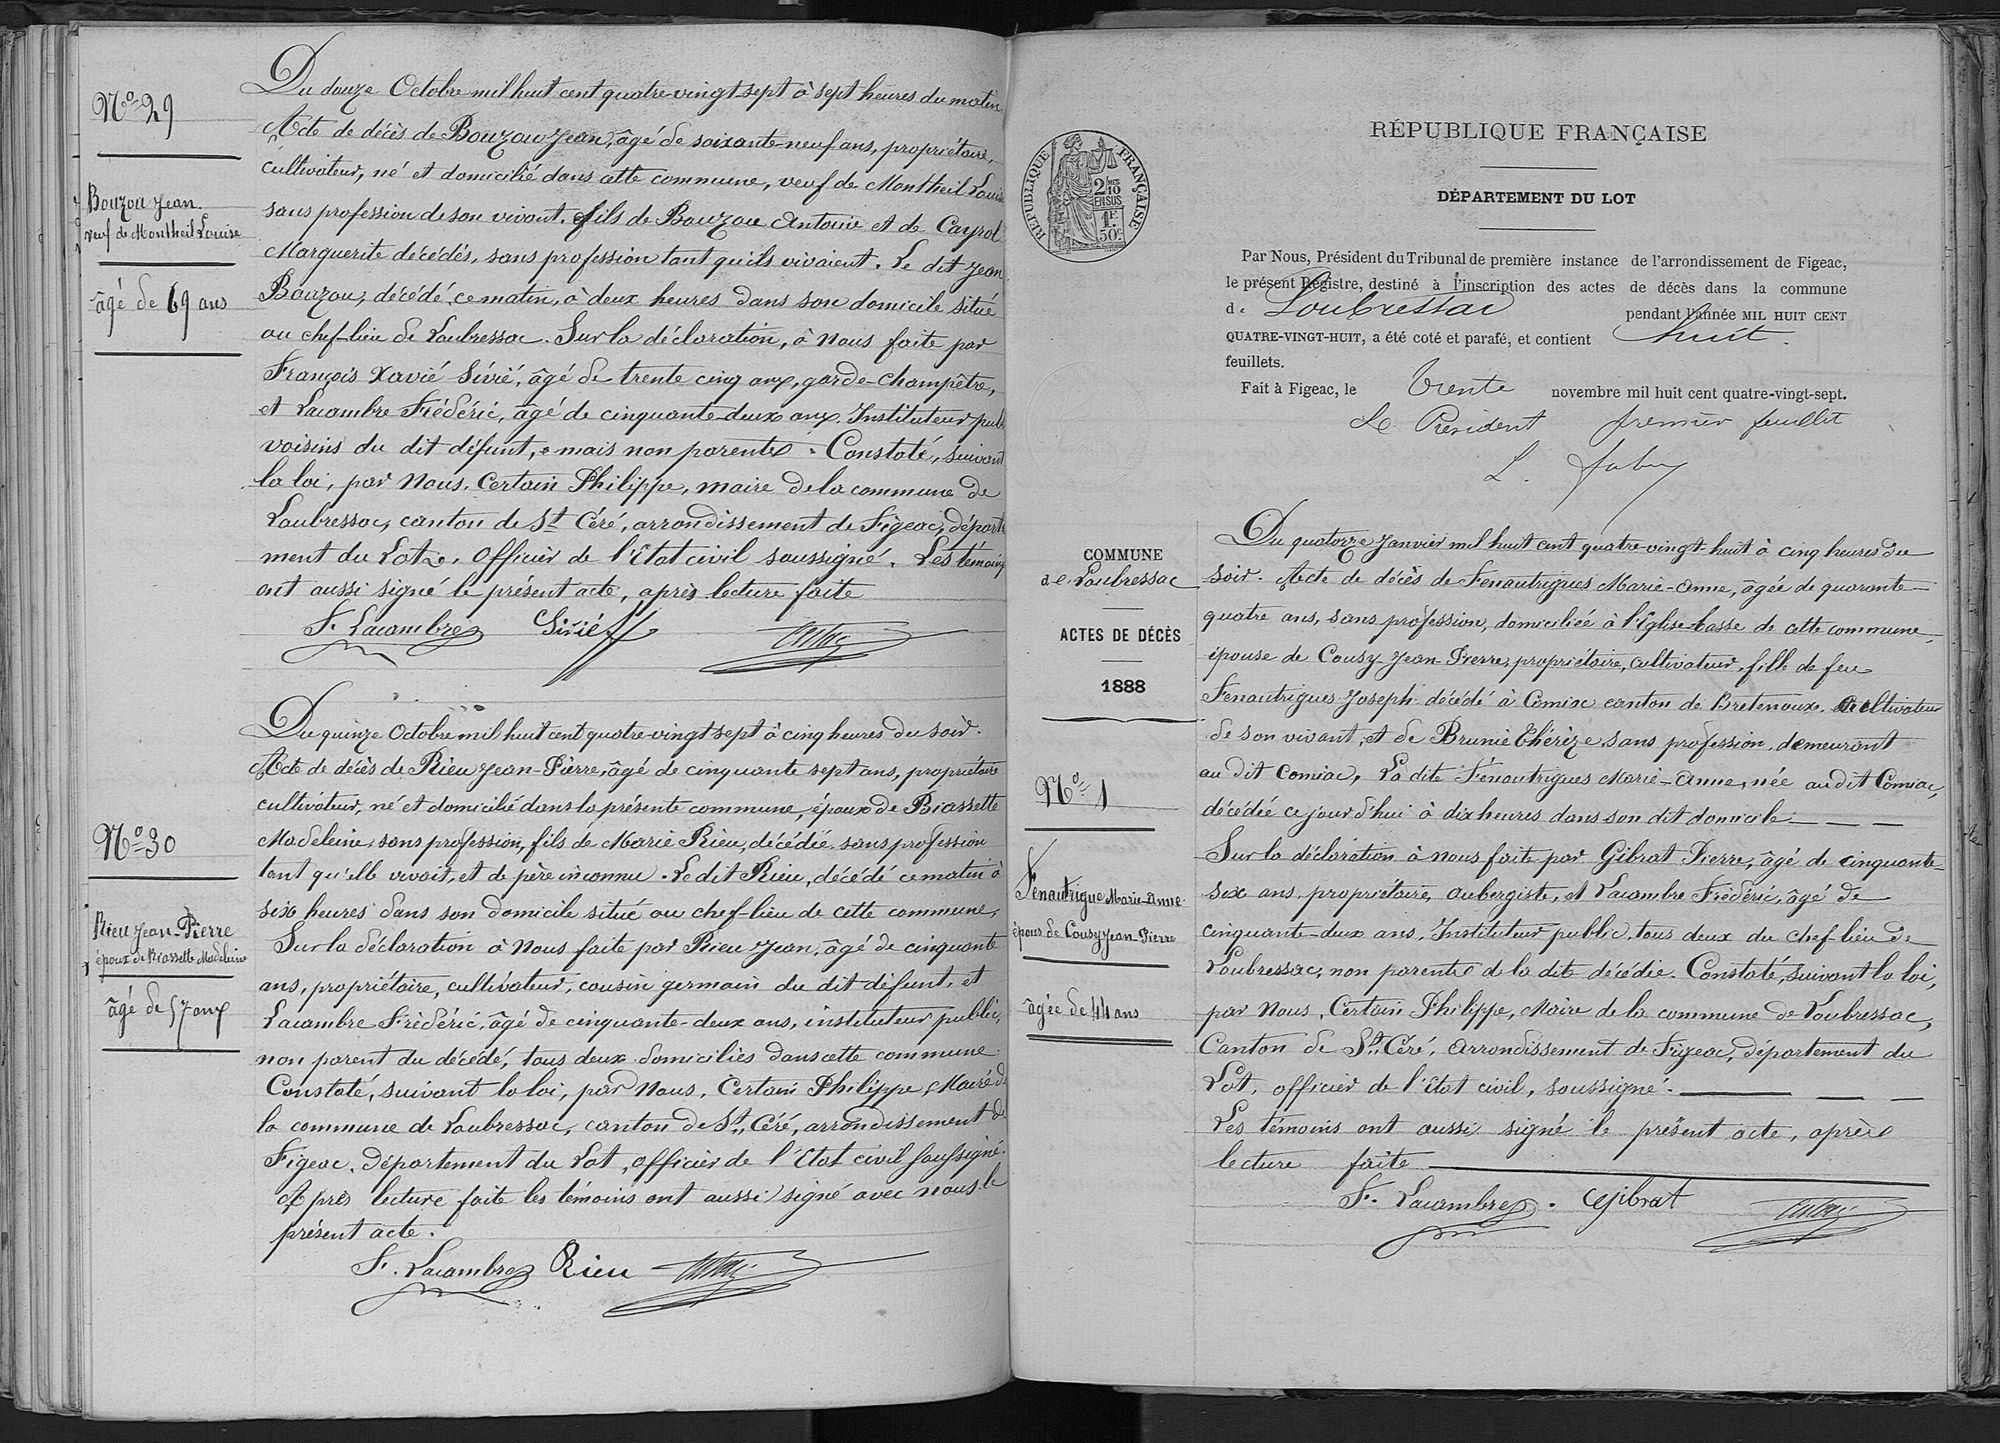 Nº 29
Bouzou Jean.
veuf de Montheil Louise
âgé de 69 ans
Du douze Octobre mil huit cent quatre-vingt-sept à sept heures du matin
Acte de décès de Bouzou Jean, âgé de soixante-neuf ans, propriétaire,
cultivateur, né et domicilié dans cette commune, veuf de Montheil Louise
sans profession de son vivant, fils de Bouzou Antoine et de Cayrol
Marguerite décédés, sans profession tant qu'ils vivaient. Le dit Jean
Bouzou, décédé, ce matin, à deux heures dans son domicile situé
au chef-lieu de Loubressac. Sur la déclaration, à Nous faite par
François Xavié Sirié, âgé de trente cinq ans, garde-champêtre,
et Lacambre Frédéric, âgé de cinquante-deux ans, Instituteur publ
voisins du dit défunt, mais non parents. Constaté, suivant
la loi, par Nous, Certain Philippe, maire de la commune de
Loubressac, canton de St Céré, arrondissement de Figeac, départe
ment du Lot, Officier de l'Etat civil soussigné. Les témoins
ont aussi signé le présent acte, après lecture faite
F. Lacambre Sirié
Nº 30
Rieu Jean-Pierre
époux de Biassette Madeleine
âgé de 57 ans
Du quinze Octobre mil huit cent quatre-vingt sept à cinq heures du soir.
Acte de décès de Rieu Jean-Pierre, âgé de cinquante sept ans, propriétaire
cultivateur, né et domicilié dans la présente commune, époux de Biassette
Madeleine, sans profession, fils de Marie Rieu, décédée, sans profession
tant qu'elle vivait, et de père inconnu. Le dit Rieu, décédé ce matin à
six heures dans son domicile situé au chef-lieu de cette commune,
Sur la déclaration à Nous faite par Rieu Jean, âgé de cinquante
ans, propriétaire, cultivateur, cousin germain du dit défunt, et
Lacambre Frédéric, âgé de cinquante-deux ans, instituteur public,
non parent du décédé, tous deux domiciliés dans cette commune
Constaté, suivant la loi, par Nous, Certain Philippe, Maire de
la commune de Loubressac, canton de St Céré, arrondissement de
Figeac, département du Lot, officier de l'Etat civil soussigné.
Après lecture faite les témoins ont aussi signé avec nous le
présent acte.
F. Lacambre Rieu
RÉPUBLIQUE FRANÇAISE
2 10 MES EN SUS
1 F. 50 C
RÉPUBLIQUE FRANÇAISE
DÉPARTEMENT DU LOT
Par Nous, Président du Tribunal de première instance de l'arrondissement de Figeac,
le présent Registre, destiné à l'inscription des actes de décès dans la commune
de Loubressac pendant l'année MIL HUIT CENT
QUATRE-VINGT-HUIT, a été coté et parafé, et contient huit.
feuillets.
Fait à Figeac, le trente novembre mil huit cent quatre-vingt-sept.
Le Président premier feuillet
COMMUNE
de Loubressac
ACTES DE DÉCÈS
1888
Nº 1
Fenautrigue Marie-Anne
épouse de Cousy Jean-Pierre
âgée de 44 ans
Du quatorze Janvier mil huit cent quatre-vingt-huit à cinq heures du
soir. Acte de décès de Fenautrigues Marie-Anne, âgée de quarante-
quatre ans, sans profession, domiciliée à l'Eglise-basse de cette commune,
épouse de Cousy Jean-Pierre, propriétaire, cultivateur, fille de feu
Fenautrigues Joseph décédé à Comiac canton de Bretenoux, cultivateur
de son vivant, et de Brunie Thérèze, sans profession, demeurant
au dit Comiac, La dite Fénautrigues Marie-Anne, née au dit Comiac,
décédée ce jour d'hui à dix heures dans son dit domicile
Sur la déclaration à nous faite par Gibrat Pierre, âgé de cinquante-
six ans, propriétaire, aubergiste, et Lacambre Frédéric, âgé de
cinquante-deux ans, Instituteur public, tous deux du chef-lieu de
Loubressac, non parents de la dite décédée. Constaté, suivant la loi,
par Nous, Certain Philippe, Maire de la commune de Loubressac,
Canton de St Céré, arrondissement de Figeac, département du
Lot, officier de l'Etat civil, soussigné.
Les témoins ont aussi signé le présent acte, après
lecture faite
F. Lacambre. Gibrat